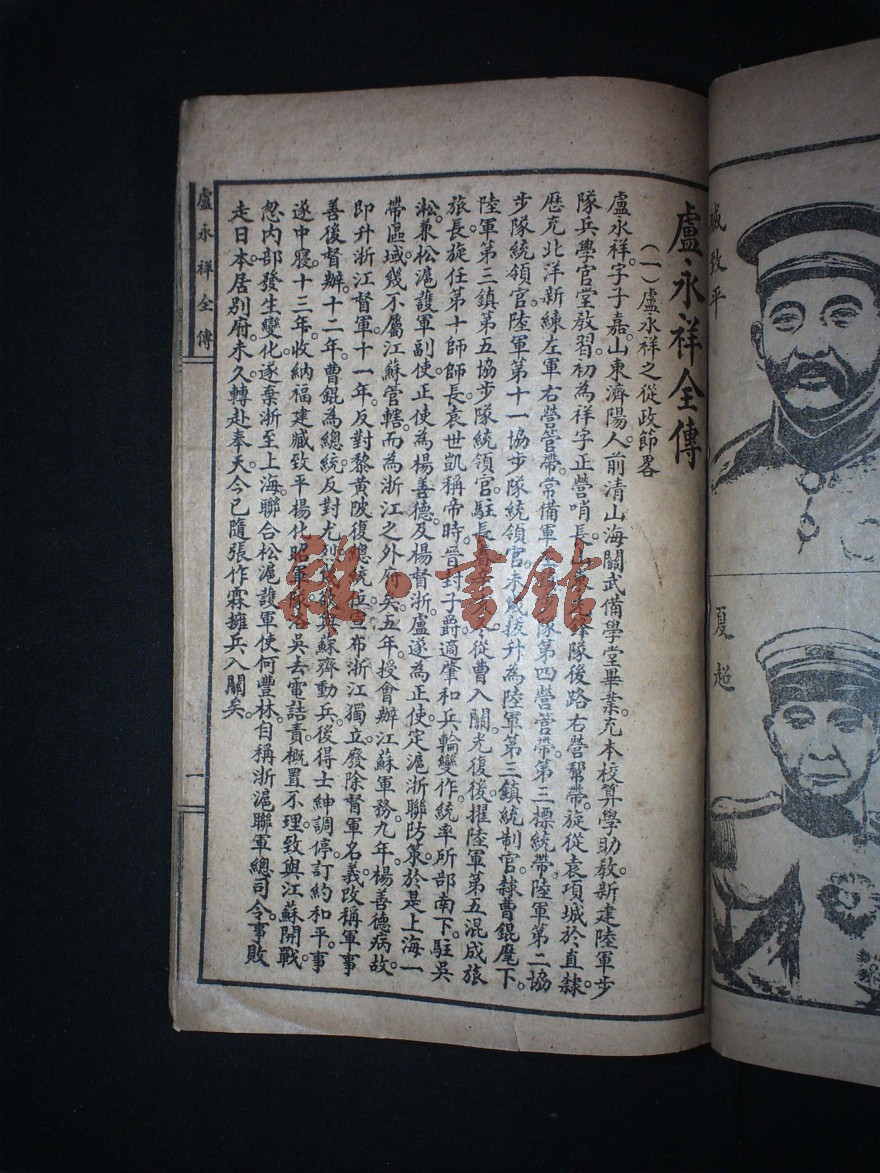 臧致平
夏超
盧永祥全傳
(一)盧永祥之從政節畧
盧永祥。字子嘉。山東濟陽人。前清山海關武備學堂畢業。充本校算學助敎。新建陸軍步
隊兵學官堂敎習。初為祥字正營哨長。鋒隊後路右營幫帶。旋從袁項城於直隸。
歷充北洋新練左軍右營管帶。常備軍隊第四營管帶。第三標統帶。陸軍第二協
步隊統領官。陸軍第十一協步隊統領官。未幾拔升為陸軍第三鎮統制官。隸曹錕麾下。
陸軍第三鎮第五協步隊統領官。駐長春。從曹入關。光復後擢陸軍第五混成旅
旅長。旋任第十師師長。袁世凱稱帝時。晉封子爵。適肇和兵輪變作。統率所部南下。駐吳
淞。兼松滬護軍副使。正使為楊善德。及楊督浙。盧遂為正使。定滬浙聯防策。於是上海一
帶區域。幾不屬江蘇管轄。而為浙江之外府矣。五年。授會辦江蘇軍務。九年。楊善德病故。
即升浙江督軍。十一年。反對黎黃陂復總統位。宣布浙江獨立。廢除督軍名義。改稱軍事
善後督辦。十二年。曹錕為總統。反對尤烈。與蘇齊動兵。後得士紳調停。訂約和平。事
遂中寢。十三年。收納福建臧致平楊化昭軍隊。吳去電詰責。概置不理。致與江蘇開戰。
忽內部發生變化。遂棄浙至上海。聯合松滬護軍使何豐林。自稱浙滬聯軍總司令。事敗
走日本。居別府。未久轉赴奉天。今已隨張作霖擁兵入關矣。
盧永祥全傳
一